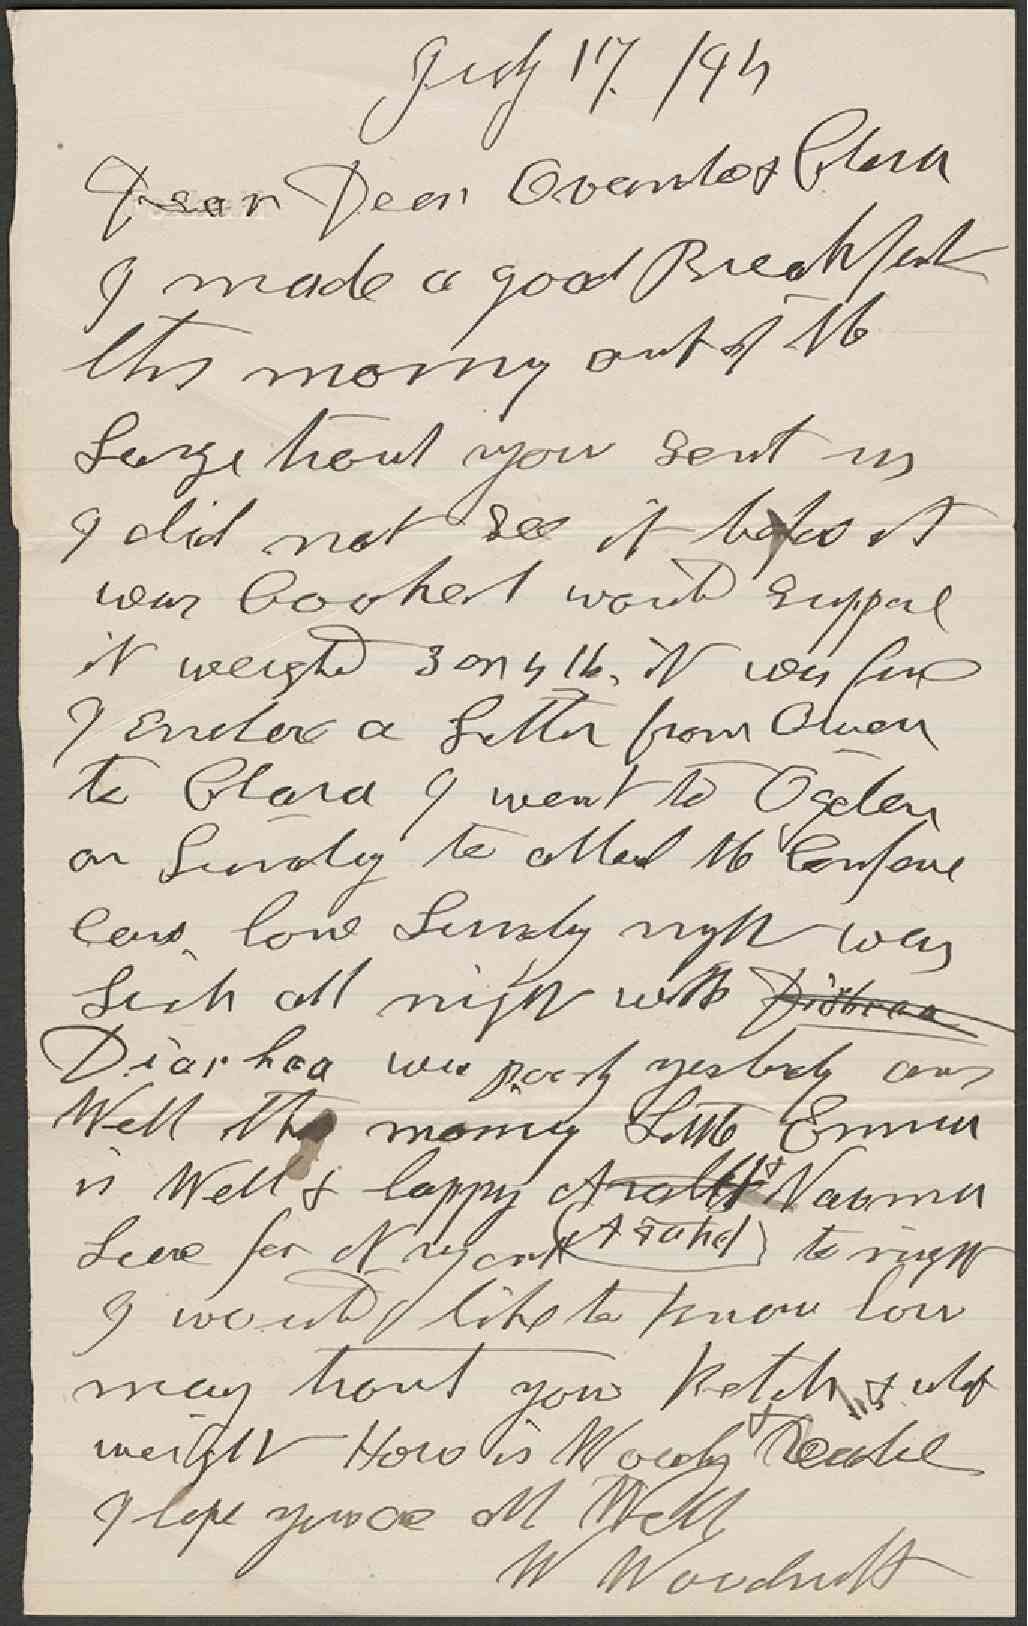 July 17 /94
Dear Dear Ovando & Clara
I made a good Breakfast
this morning out of the
Large trout you sent us
I did not see it befor it
was Cooked would suppose
it weighd 3 or 4 lb, it was fine
I Enclose a Letter from Owen
to Clara I went to Ogden
on Sunday to attend the Confere
Came home Sunday night was
Sick all night with Diarhea
Diarhea was poorly yesterday am
Well this morning Little Emma
is Well & happy Asahel & Naomi
Leave for New york (Asahel) to night
I would like to know how
many trout you Ketch & what
weight How is Woody &
I hope you are all Well
W Woodruff